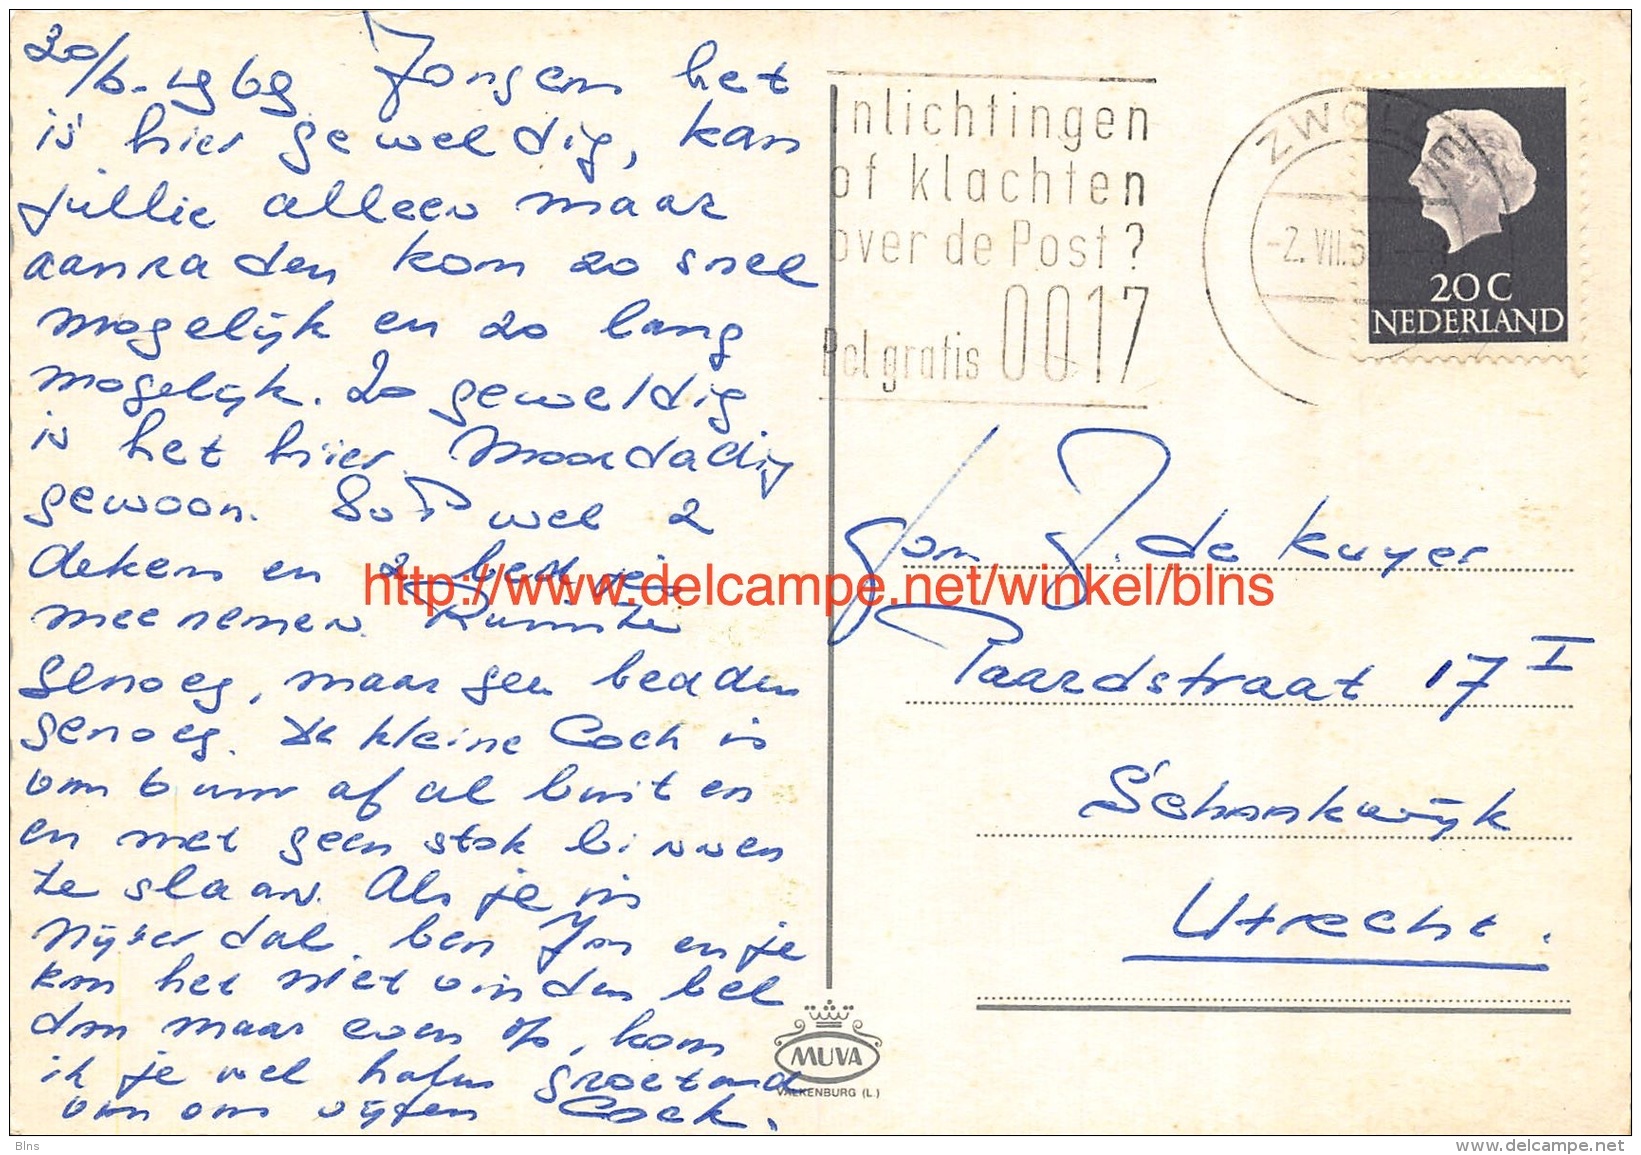 20/6-1969 Jongens het
is hier geweldig, kan
jullie alleen maar
aanraden kom zo snel
mogelijk en zo lang
mogelijk. Zo geweldig
is het hier. Moordadig
gewoon. wel 2
dekens en 2 bedjes
meenemen. Ruimte
genoeg, maar geen bedden
genoeg. De kleine Cock is
van af al buiten
en met geen stok binnen
te slaan. Als je in
Nijverdal ben Jan en je
kan het niet vinden bel
dan maar even op, kom
ik je wel halen groetend
van ons vijfen Cock.
Inlichtingen
of klachten
over de Post?
Bel gratis 0017
ZWOLLE
-2.VII.6
20 C
NEDERLAND
Fam J. de Kuyer
Paardstraat 17 I
Schonkwijk
Utrecht.
MUVA
VALKENBURG (L.)
http://www.delcampe.net/winkel/blns
Blns
www.delcampe.net